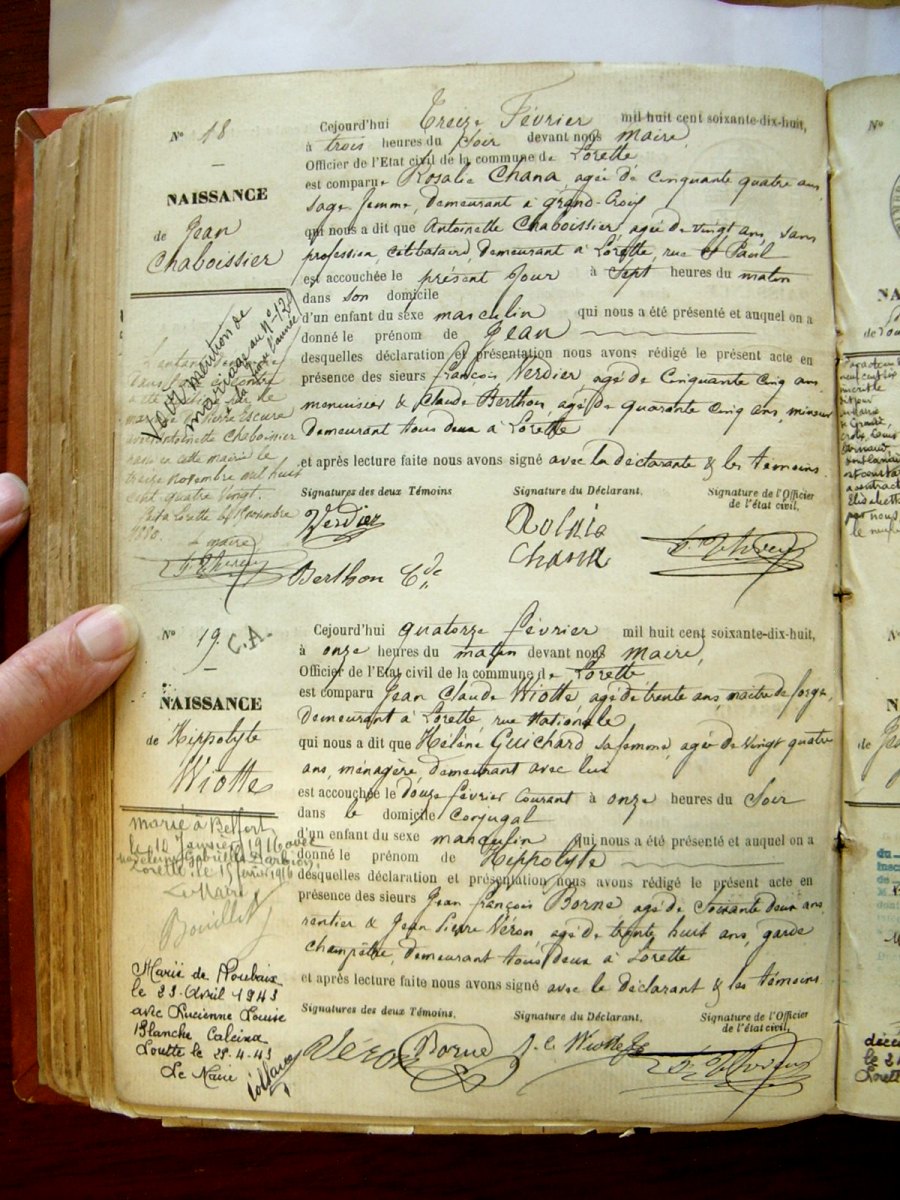 N° 18
NAISSANCE
de Jean
Chaboissier
Cejourd'hui Treize Février mil huit cent soixante-dix-huit,
à trois heures du soir devant nous maire,
Officier de l'Etat civil de la commune de Lorette
est comparue Rosalie Chana, agée de Cinquante quatre ans,
sage femme, demeurant à Grand-Croix
qui nous a dit que Antoinette Chaboissier, agée de vingt ans, sans
profession, célibataire, demeurant à Lorette, rue St Paul
est accouchée le présent jour à sept heures du matin
dans son domicile
d'un enfant du sexe masculin qui nous a été présenté et auquel on a
donné le prénom de Jean
desquelles déclaration et présentation nous avons rédigé le présent acte en
présence des sieurs François Verdier agé de Cinquante Cinq ans
menuisier & Claude Berthon, agé de quarante Cinq ans, mineur
demeurant tous deux à Lorette
et après lecture faite nous avons signé avec la déclarante & les témoins
Signatures des deux Témoins
Signature du Déclarant,
Signature de l'Officier
de l'état civil,
Verdier
Chana
Berthon Cde
mention de
mariage au N° 12
de l'année
avec Antoinette Chaboissier
en cette mairie le
treize novembre mil huit
cent quatre vingt.
Lorette Novembre
1880.
maire
N° 19 C.A.
NAISSANCE
de Hippolyte
Wiotte
Cejourd'hui quatorze février mil huit cent soixante-dix-huit,
à onze heures du matin devant nous maire,
Officier de l'Etat civil de la commune de Lorette
est comparu Jean Claude Wiotte, agé de trente ans, maître de forge,
demeurant à Lorette, rue Nationale
qui nous a dit que Hélène Guichard sa femme, agée de vingt quatre
ans, ménagère, demeurant avec lui
est accouchée le douze février courant à onze heures du soir
dans le domicile conjugal
d'un enfant du sexe masculin qui nous a été présenté et auquel on a
donné le prénom de Hippolyte
desquelles déclaration et présentation nous avons rédigé le présent acte en
présence des sieurs Jean François Borne agé de soixante deux ans,
rentier & Jean Pierre Véron agé de trente huit ans, garde
champêtre, demeurant tous deux à Lorette
et après lecture faite nous avons signé avec le déclarant & les témoins
Signatures des deux Témoins.
Signature du Déclarant,
Signature de l'Officier
de l'état civil,
Véron Borne J. C. Wiotte
Marié à Belfort
le 10 Janvier 1916 avec
Gabrielle
Lorette le 15 Janvier 1916
Le Maire
Bouillet
Marié de Roubaix
le 23 Avril 1943
avec Lucienne Louise
Blanche
Lorette le 28.4.43
Le Maire
N°